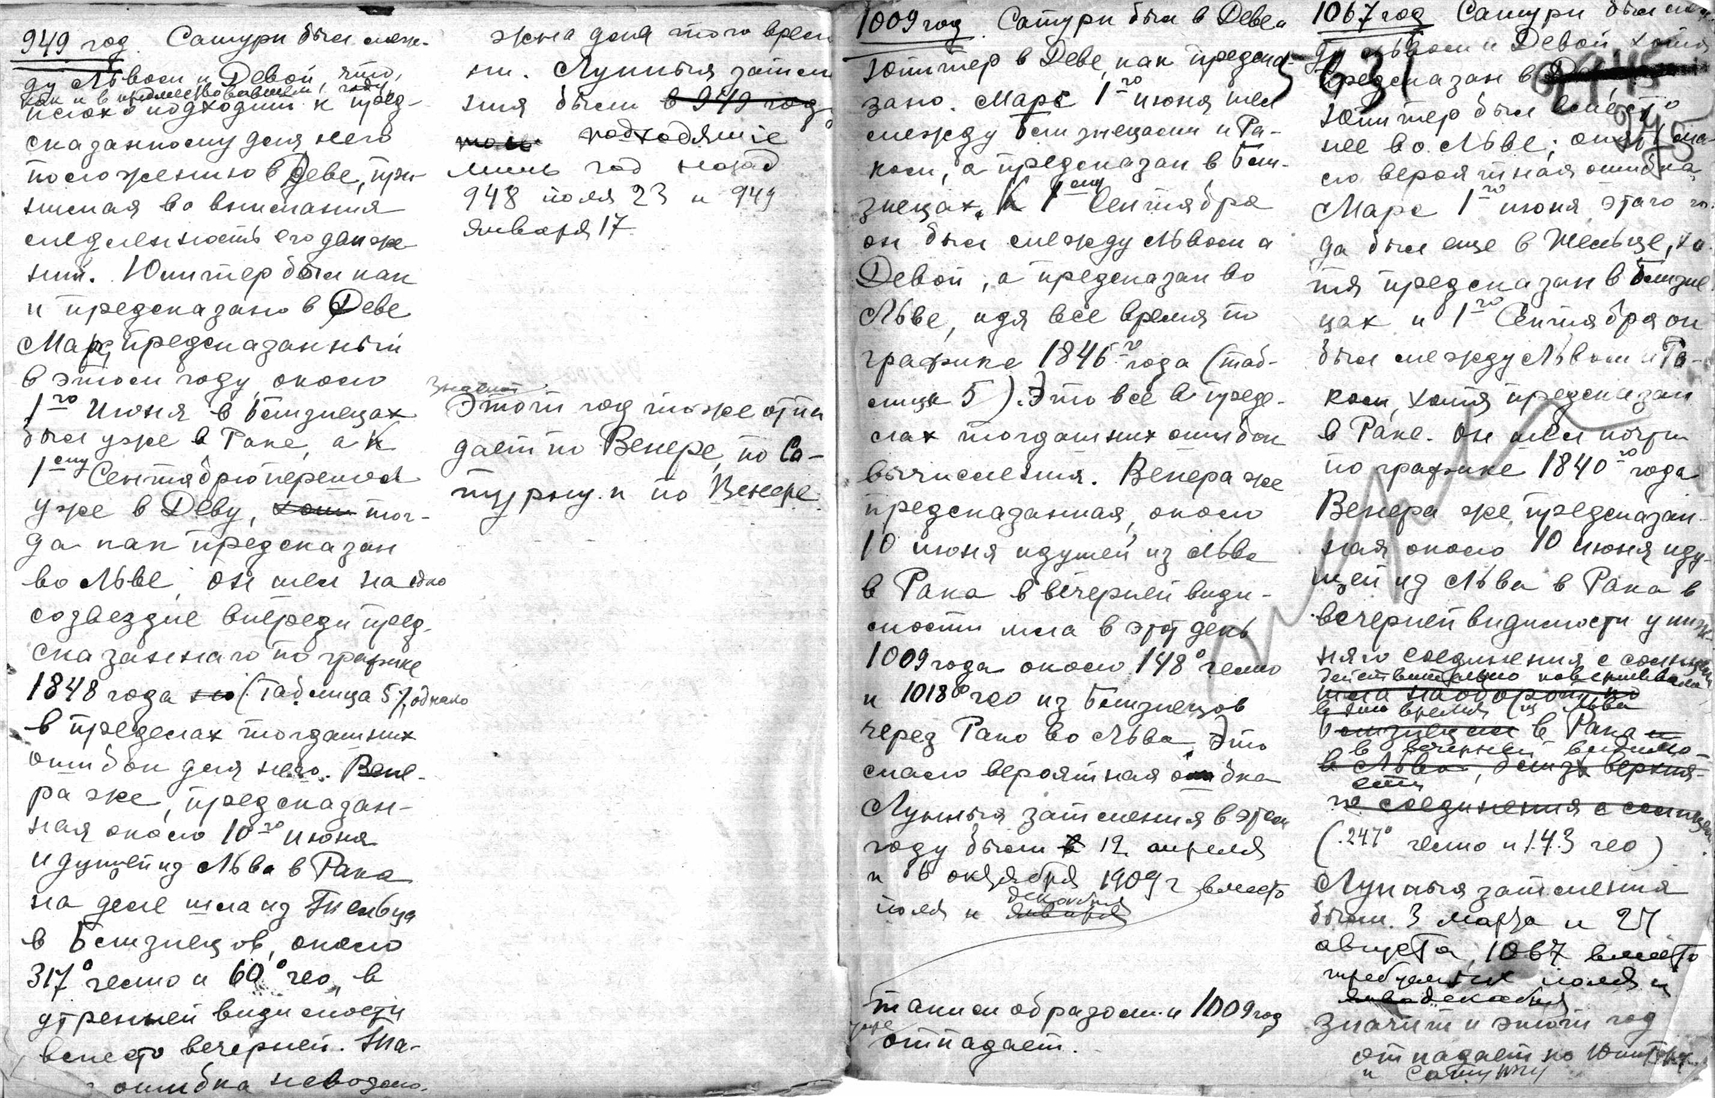 949 год. Сатурн был меж-
ду Львом и Девой, что,
как и в предшествовавшем, году
плохо подходит к пред-
сказанному для него
положению в Деве, при-
нимая во внимания
медленность его движе-
ний. Юпитер был как
и предсказано в Деве
Марс, предсказанный
в этом году около
1го Июня в Близнецах
был уже в Раке, а к
1ому Сентябрю перешел
уже в Деву, тог-
да как предсказан
во Льве, он шел на одно
созвездие впереди пред-
сказаннаго по графике
1848 года (Таблица 5), однако
в пределах тогдашних
ошибок для него. Вене-
ра же, предсказан-
ная около 10го июня
идущей из Льва в Рака
на деле шла из Тельца
в Близнецов, около
317° гелио и 60° гео, в
утренней видимости
вместо вечерней. Та-
ошибка невозмо-
жна для того време
ни. Лунныя затме
ния были в 949 году
подходящие
лишь год назад
948 июля 23 и 949
января 17
значит
Этот год тоже отпа
дает по Венере, по Са-
турну и по Венере.
1009 год. Сатурн был в Деве и
Юпитер в Деве, как предска-
зано. Марс 1го июня шел
между близнецами и Ра-
ком, а предсказан в Близ-
нецах. К 1ому Сентября
он был между Львом и
Девой, а предсказан во
Льве, идя все время по
графике 1846го года (таб-
лица 5). Это все в преде-
лах тогдашних ошибок
вычисления. Венера же
предсказанная, около
10 июня идущей из Льва
в Рака в вечерней види-
мости шла в этот день
1009 года около 148° гелио
и 1018° гео из Близнецов
через Рака во Льва. Это
мало вероятная ошибка
Лунныя затмения в этом
году были 12 апреля
и 6 октября 1909 г вместо
июля и января
декабря
таким образом и 1009 год
уже
отпадает.
1067 год Сатурн был меж-
ду Львом и Девой, хотя
предсказан в
5631
Юпитер был
нее во Льве; опять ма-
ло вероятная ошибка
Марс 1го июня этого го-
да был еще в Тельце, хо-
тя предсказан в Близне
цах и 1го Сентября он
был между Львом и Ра-
ком, хотя предсказан
в Раке. Он шел почти
по графике 1840го года
Венера же, предсказан-
ная около 10 июня иду-
щей из Льва в Рака в
вечерней видимости у ниж-
няго соединения с солнцем
действительно повернивала
шла наоборот из
в это время из Льва
Близнецы в Рака и
в вечерней видимо-
в Льва, близ верхня-
сти
го соединения с солнцем
(247° гелио и 143 гео)
Лунныя затмения
были 3 марта и 27
августа 1067 вместо
требуемых июля и
января декабря
значит и этот год
отпадает по Юпитеру
и Сатурну